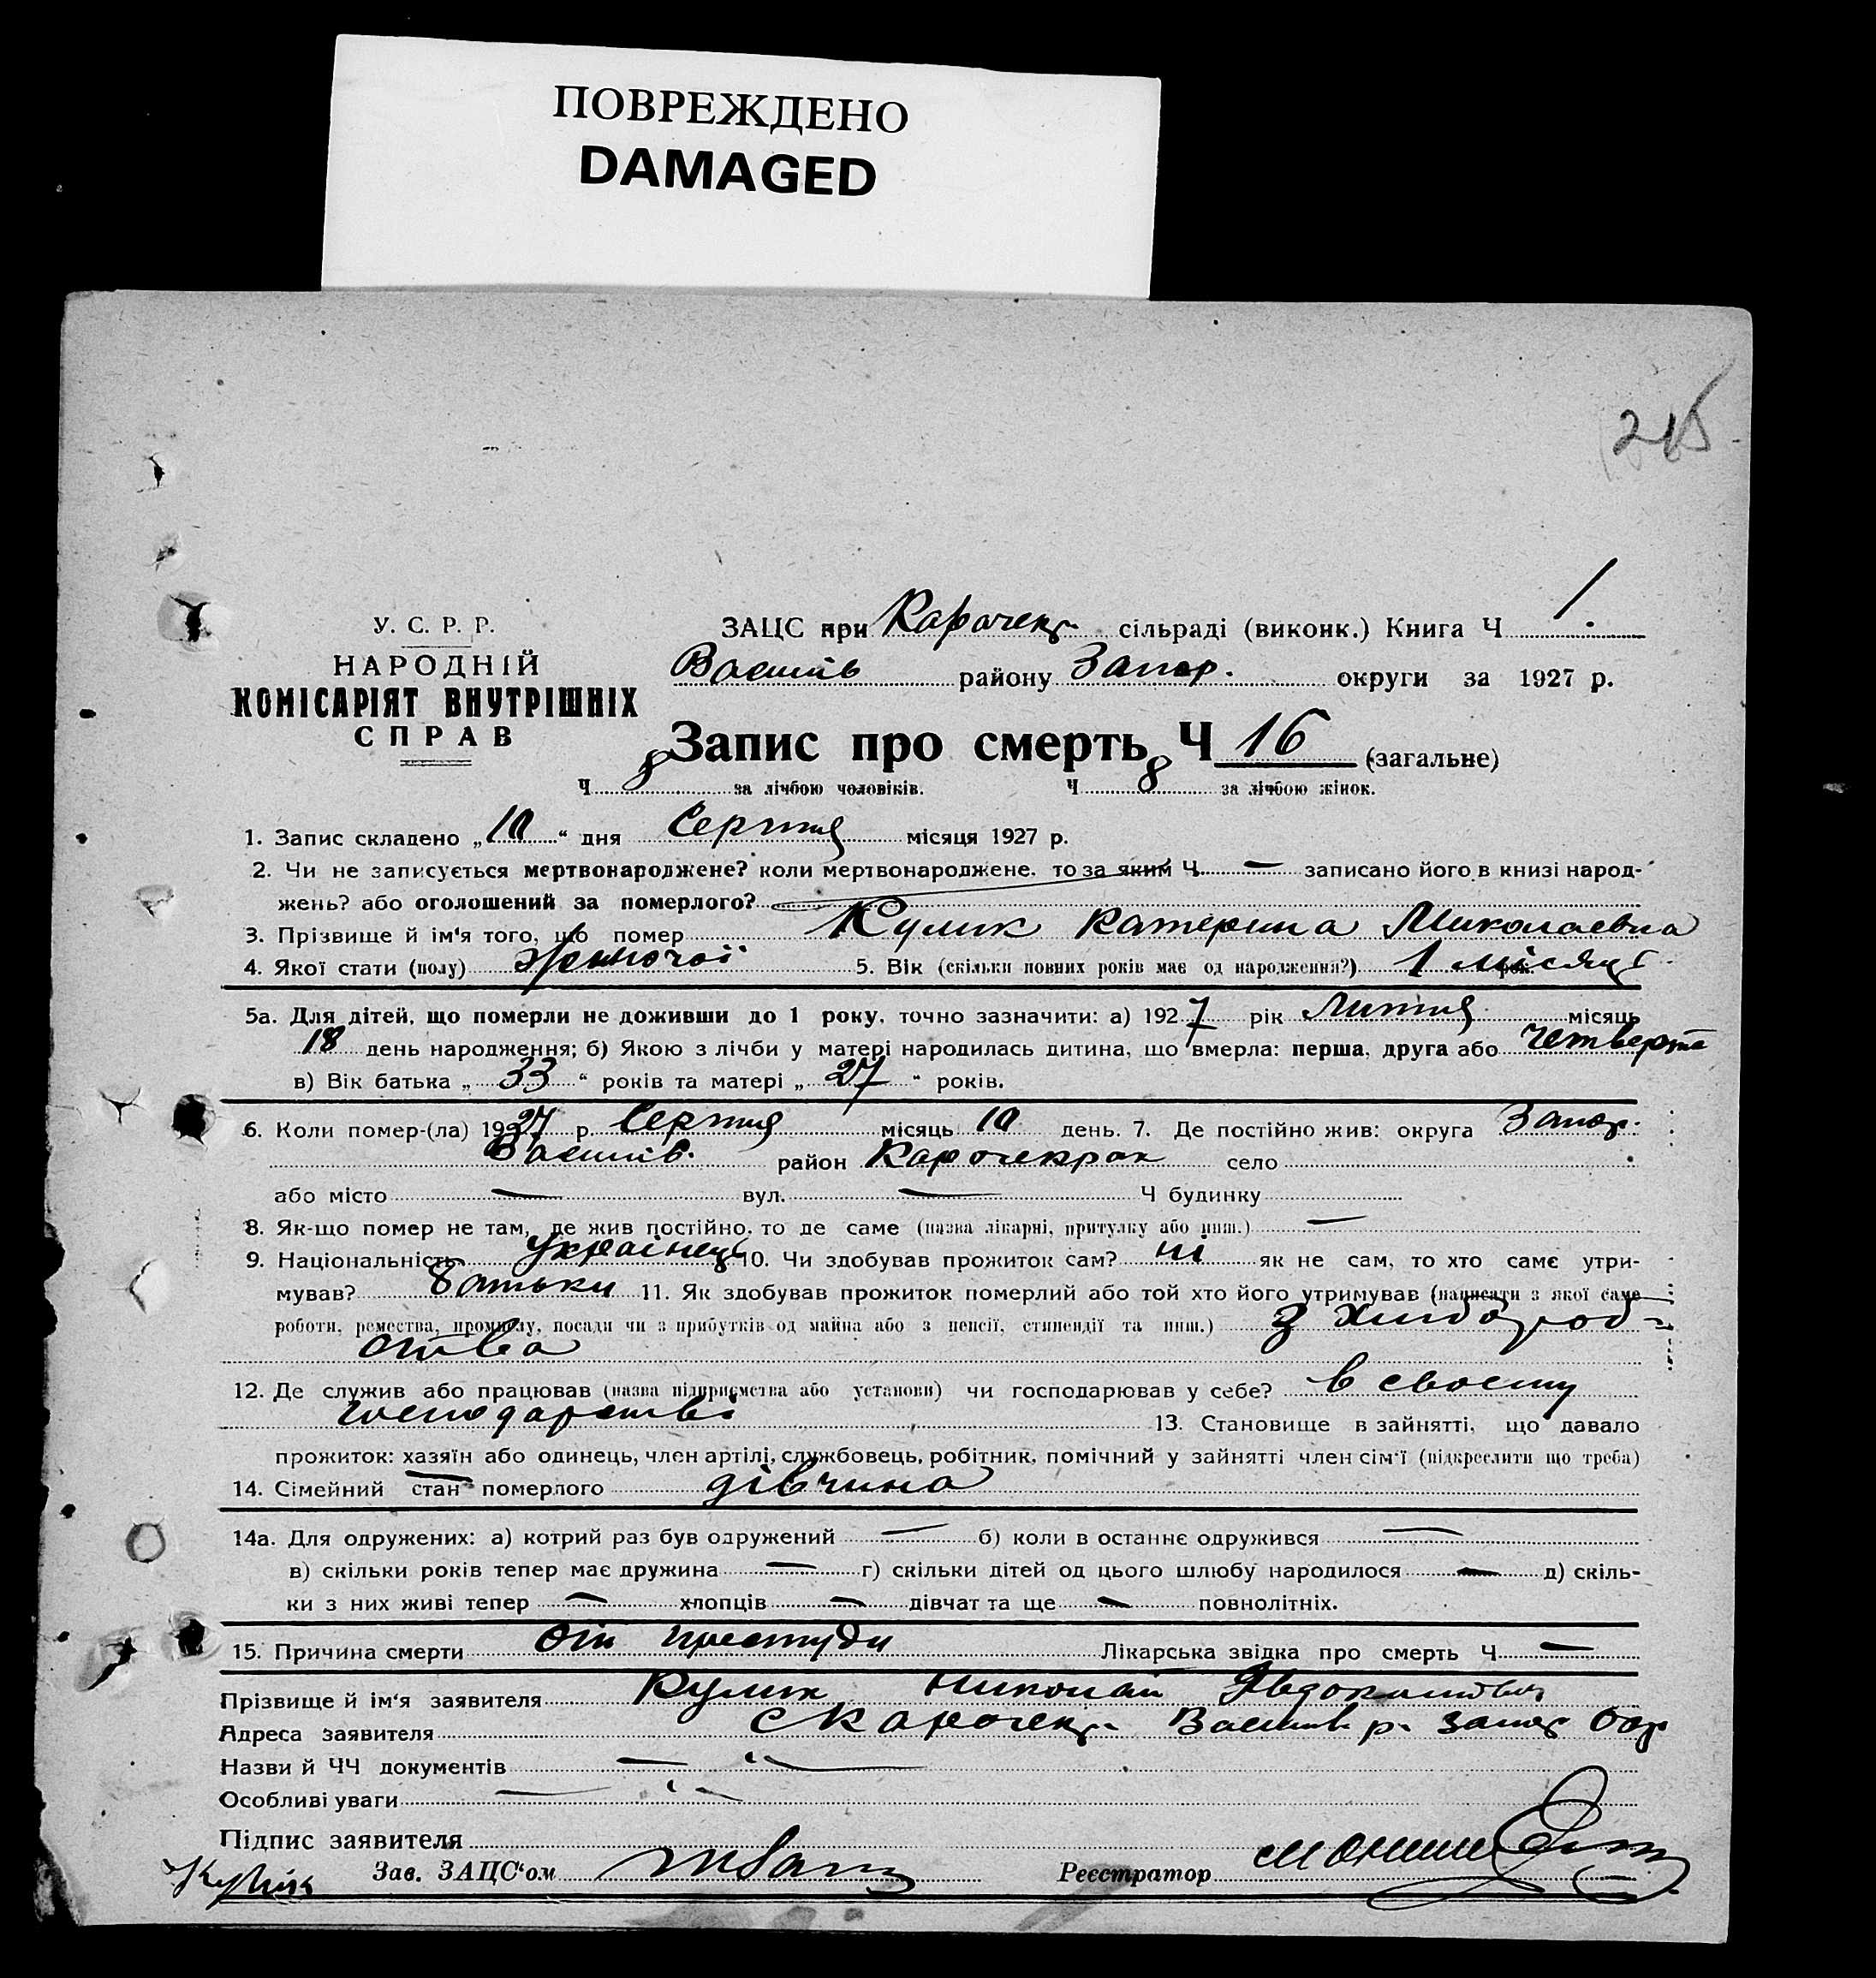 ПОВРЕЖДЕНО
DAMAGED
215
У. С. Р. Р.
НАРОДНІЙ
КОМІСАРІЯТ ВНУТРІШНІХ
СПРАВ
ЗАЦС при Карачекр. сільраді (виконк.) Книга Ч 1.
Василів району Запор. округи за 1927 р.
Запис про смерть Ч 16 (загальне)
Ч 8 за лічбою чоловіків. Ч 8 за лічбою жінок.
1. Запис складено „10“ дня Серпня місяця 1927 р.
2. Чи не записується мертвонароджене? коли мертвонароджене, то за яким Ч — записано його в книзі народ-
жень? або оголошений за померлого?
3. Прізвище й ім'я того, що помер Кулик Катерина Миколаевна
4. Якої стати (полу) жіночої 5. Вік (скільки повних років має од народження?) 1 місяць
5а. Для дітей, що померли не доживши до 1 року, точно зазначити: а) 1927 рік Липня місяць
18 день народження; б) Якою з лічби у матері народилась дитина, що вмерла: перша, друга або четверта
в) Вік батька „33“ років та матері „27“ років.
6. Коли помер-(ла) 1927 р. Серпня місяць 10 день. 7. Де постійно жив: округа Запор.
Василів. район Карачекрак село
або місто — вул. — Ч будинку
8. Як-що помер не там, де жив постійно, то де саме (назва лікарні, притулку або инш.) —
9. Національність Українець 10. Чи здобував прожиток сам? ні як не сам, то хто саме утри-
мував? батьки 11. Як здобував прожиток померлий або той хто його утримував (написати з якої саме
роботи, ремества, промислу, посади чи з прибутків од майна або з пенсії, стипендії та инш.) З Хлібороб-
ства
12. Де служив або працював (назва підприємства або установи) чи господарював у себе? в своему
господарстві 13. Становище в зайнятті, що давало
прожиток: хазяїн або одинець, член артілі, службовець, робітник, помічний у зайнятті член сім'ї (підкреслити що треба)
14. Сімейний стан померлого дівчина
14а. Для одружених: а) котрий раз був одружений — б) коли в останнє одружився —
в) скільки років тепер має дружина — г) скільки дітей од цього шлюбу народилося — д) скіль-
ки з них живі тепер — хлопців — дівчат та ще — повнолітніх.
15. Причина смерти від простуди Лікарська звідка про смерть Ч —
Прізвище й ім'я заявителя Кулик Николай Явдокимович
Адреса заявителя с Карачекр. Василів. р. Запор Окр
Назви й ЧЧ документів — " —
Особливі уваги — " —
Підпис заявителя
Кулик Зав. ЗАЦС'ом Реєстратор